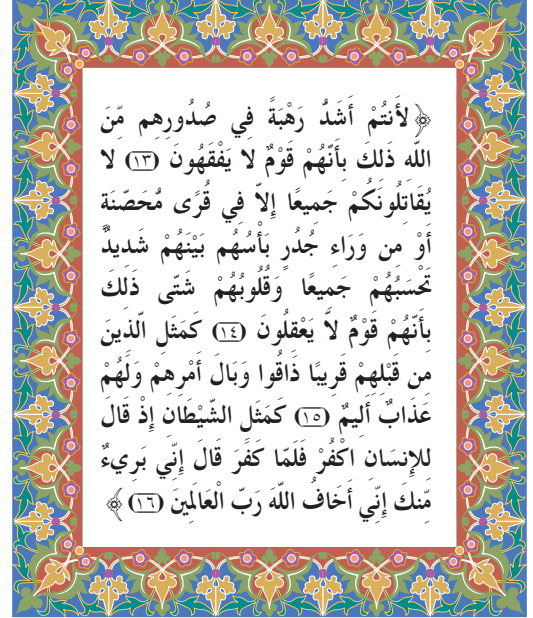 ﴿ لأَنتُمْ أَشَدُّ رَهْبَةً فِي صُدُورِهِم مِّنَ
اللَّهِ ذَلِكَ بِأَنَّهُمْ قَوْمٌ لا يَفْقَهُونَ (١٣) لا
يُقَاتِلُونَكُمْ جَمِيعًا إِلاَّ فِي قُرًى مُّحَصَّنَةٍ
أَوْ مِن وَرَاءِ جُدُرٍ بَأْسُهُم بَيْنَهُمْ شَدِيدٌ
تَحْسَبُهُمْ جَمِيعًا وَقُلُوبُهُمْ شَتَّى ذَلِكَ
بِأَنَّهُمْ قَوْمٌ لاَّ يَعْقِلُونَ (١٤) كَمَثَلِ الَّذِينَ
مِن قَبْلِهِمْ قَرِيبًا ذَاقُوا وَبَالَ أَمْرِهِمْ وَلَهُمْ
عَذَابٌ أَلِيمٌ (١٥) كَمَثَلِ الشَّيْطَانِ إِذْ قَالَ
لِلإِنسَانِ اكْفُرْ فَلَمَّا كَفَرَ قَالَ إِنِّي بَرِيءٌ
مِّنكَ إِنِّي أَخَافُ اللَّهَ رَبَّ الْعَالَمِينَ (١٦) ﴾